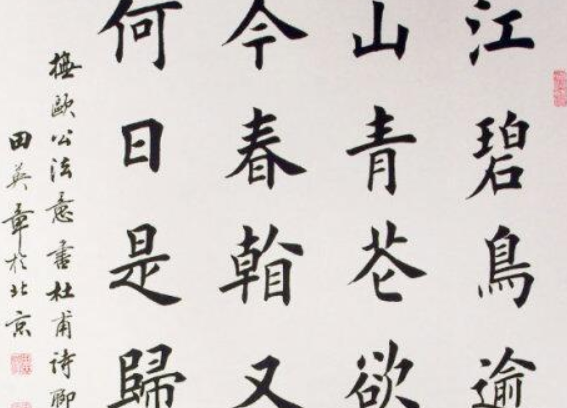 江碧鳥逾
山青花欲
今春看又
何日是歸
橅歐公法意書杜甫诗聊
田英章於北京